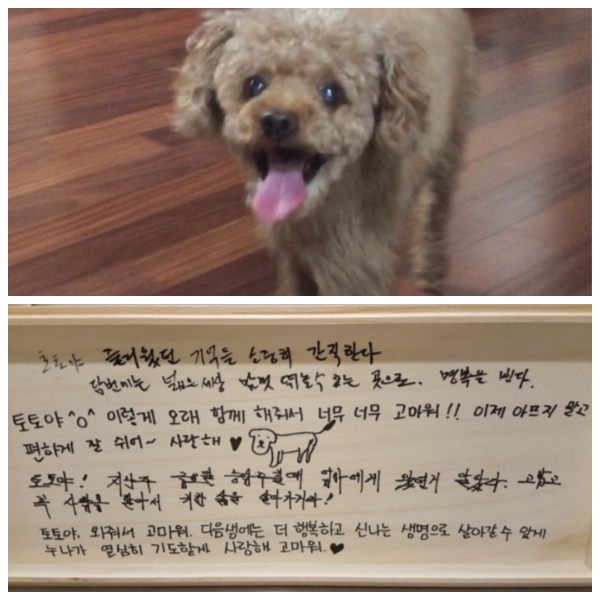 토토야 즐거웠던 기억을 소중히 간직한다
다음번에는 넓은세상 맘껏 뛰놀수 있는 곳으로. 명복을 빈다.
토토야^o^ 이렇게 오래 함께 해줘서 너무 너무 고마워!! 이제 아프지 말고
편하게 잘 쉬어~ 사랑해♥
토토야! 엄마에게
꼭 사람을
토토야. 와줘서 고마워. 다음생에는 더 행복하고 신나는 생명으로 살아갈수 있게
누나가 열심히 기도할게 사랑해 고마워.♥